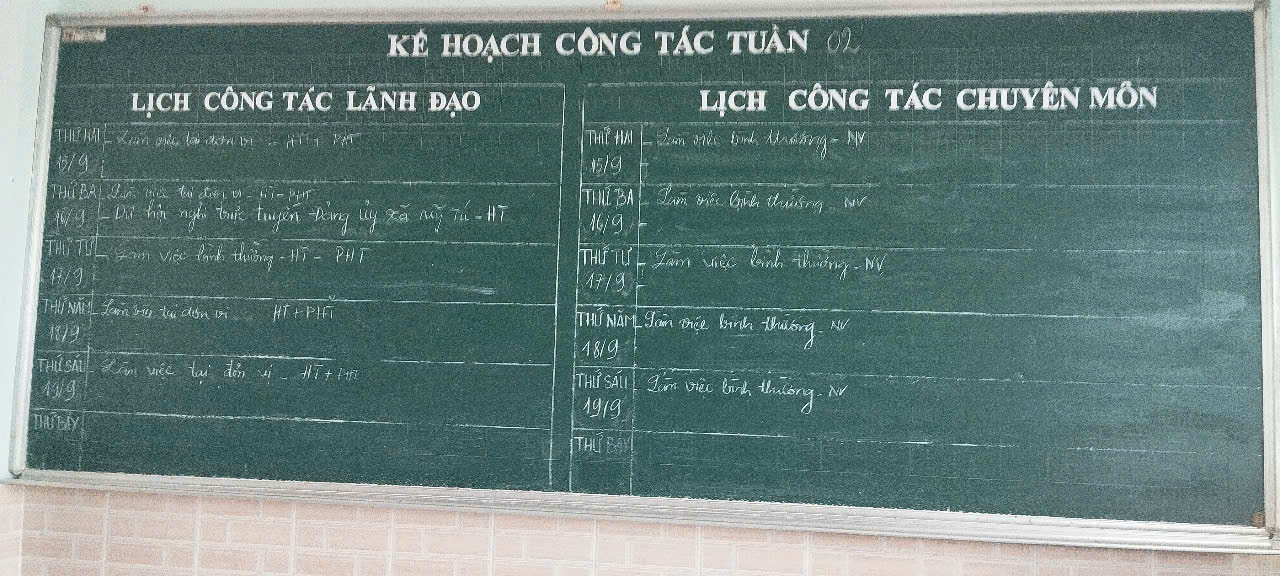 KẾ HOẠCH CÔNG TÁC TUẦN 02
LỊCH CÔNG TÁC LÃNH ĐẠO
THỨ HAI - Làm việc tại đơn vị - HT + PHT
15/9
THỨ BA - Làm việc tại đơn vị - HT - PHT
16/9 - Dự hội nghị trực tuyến Đảng ủy xã Mỹ Tú - HT
THỨ TƯ - Làm việc bình thường - HT - PHT
17/9
THỨ NĂM - Làm việc tại đơn vị HT + PHT
18/9
THỨ SÁU - Làm việc tại đơn vị - HT + PHT
19/9
THỨ BẢY
LỊCH CÔNG TÁC CHUYÊN MÔN
THỨ HAI - Làm việc bình thường - NV
15/9 -
THỨ BA - Làm việc bình thường - NV
16/9 -
THỨ TƯ - Làm việc bình thường - NV
17/9 -
THỨ NĂM - Làm việc bình thường - NV
18/9
THỨ SÁU - Làm việc bình thường - NV
19/9
THỨ BẢY